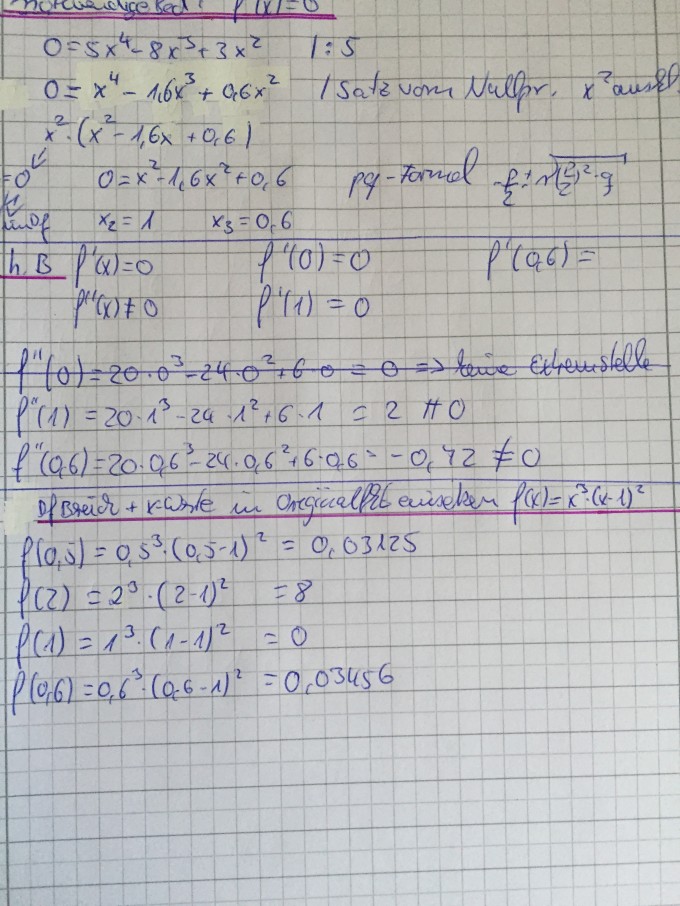 f'(x)=0
0=5x⁴-8x³+3x² |:5
0= x⁴-1,6x³+0,6x² | Satz vom Nullpr. x²
x²·(x²-1,6x+0,6)
=0 0=x²-1,6x²+0,6 pq-Formel -p/2 ± √(p/2)²-q
x₂=1 x₃=0,6
h.B f'(x)=0 f'(0)=0 f'(0,6)=
f''(x)≠0 f'(1)=0
f''(0)=20·0³-24·0²+6·0=0 => keine Extremstelle
f''(1)=20·1³-24·1²+6·1=2 ≠0
f''(0,6)=20·0,6³-24·0,6²+6·0,6=-0,72 ≠0
+ x-Werte in einsetzen f(x)=x³·(x-1)²
f(0,5)=0,5³·(0,5-1)²=0,03125
f(2)=2³·(2-1)²=8
f(1)=1³·(1-1)²=0
f(0,6)=0,6³·(0,6-1)²=0,03456